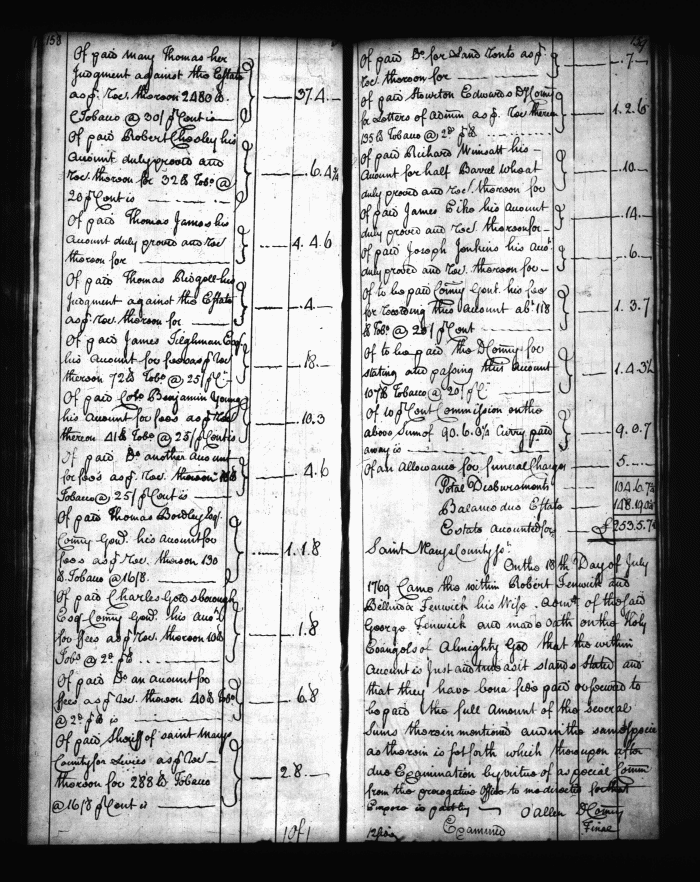 158
Of paid Mary Thomas her
Judgment against this Estate
as p. Rec. thereon 2480 lb.
Tobacco @ 30/ p Cent is — 37.4.—
Of paid Robert Chesley his
Account duly proved and
Rec. thereon for 32 lb Tobo. @
20 p Cent is — 6.4¾
Of paid Thomas James his
Account duly proved and Rec.
thereon for — 4.4.6
Of paid Thomas Bidgell his
Judgment against this Estate
as p. Rec. thereon for — 4.—
Of paid James Tilghman Esq.
his Account for fees as p Rec.
thereon 72 lb Tobo @ 25/ p Ct. — 18.—
Of paid Colo. Benjamin Young
his Account for fees as p Rec.
thereon 41 lb Tobo @ 25/ p Cent is — 10.3
Of paid Do. another Account
for fees as p. Rec. thereon 18 lb
Tobacco @ 25/ p Cent is — 4.6
Of paid Thomas Bordley Esq.
Comy. Genl. his account for
fees as p Rec. thereon 130
lb Tobacco @ 16/8. — 1.1.8
Of paid Charles Goldsborough
Esq. Comy Genl. his Acco.t
for fees as p Rec. thereon 10 lb
Tobo @ 2d. p lb — 1.8
Of paid Do. an account for
fees as p Rec. thereon 40 lb Tobo
@ 2d. p lb is — 6.8
Of paid Sheriff of Saint Marys
County for Levies as p Rec.
thereon for 288 lb Tobacco
@ 16/8 p Cent is — 2.8.—
101
159
Of paid Do. for Land Rents as p.
Rec. thereon for — .7.—
Of paid Stourton Edwards Dy Comy
for Letters of Admin as p. Rec. thereon
135 lb Tobacco @ 2d. p lb — 1.2.6
Of paid Richard Wimsatt his
Account for half Barrel Wheat
duly proved and Rec. thereon for — 10.—
Of paid James Eiko his Account
duly proved and Rec. thereon for — 14.—
Of paid Joseph Jenkins his Acco.t
duly proved and Rec. thereon for — .6.—
Of to be paid Comy Genl. his fee
for recording this Account abt. 118
lb Tobo @ 20/ p Cent — 1.3.7
Of to be paid the D Comy for
stating and passing this Account
107 lb Tobacco @ 20/ p Ct. — 1.4.3½
Of 10 p Cent Commission on the
above Sum of 90.6.0¾ Curry paid
away is — 9.0.7
Of an Allowance for funeral Charges — 5.—
Total Disbursments — 104.6.7¾
Balance due Estate — 148.19.0
Estate accounted for £ 253.5.7¾
Saint Marys County sc.
On the 18th Day of July
1769 Came the within Robert Fenwick and
Bellinda Fenwick his Wife Admrs. of the said
George Fenwick and made Oath on the Holy
Evangels of Almighty God that the within
Account is Just and true as it stands Stated and
that they have bona fide paid or secured to
be paid the full Amount of the Several
Sums therein mentioned and in the same Specie
as therein is set forth which thereupon after
due Examination by virtue of a special Comm
from the prerogative Office to me directed for that
Purpose is past by — O'Allen D Comy
Examined Final